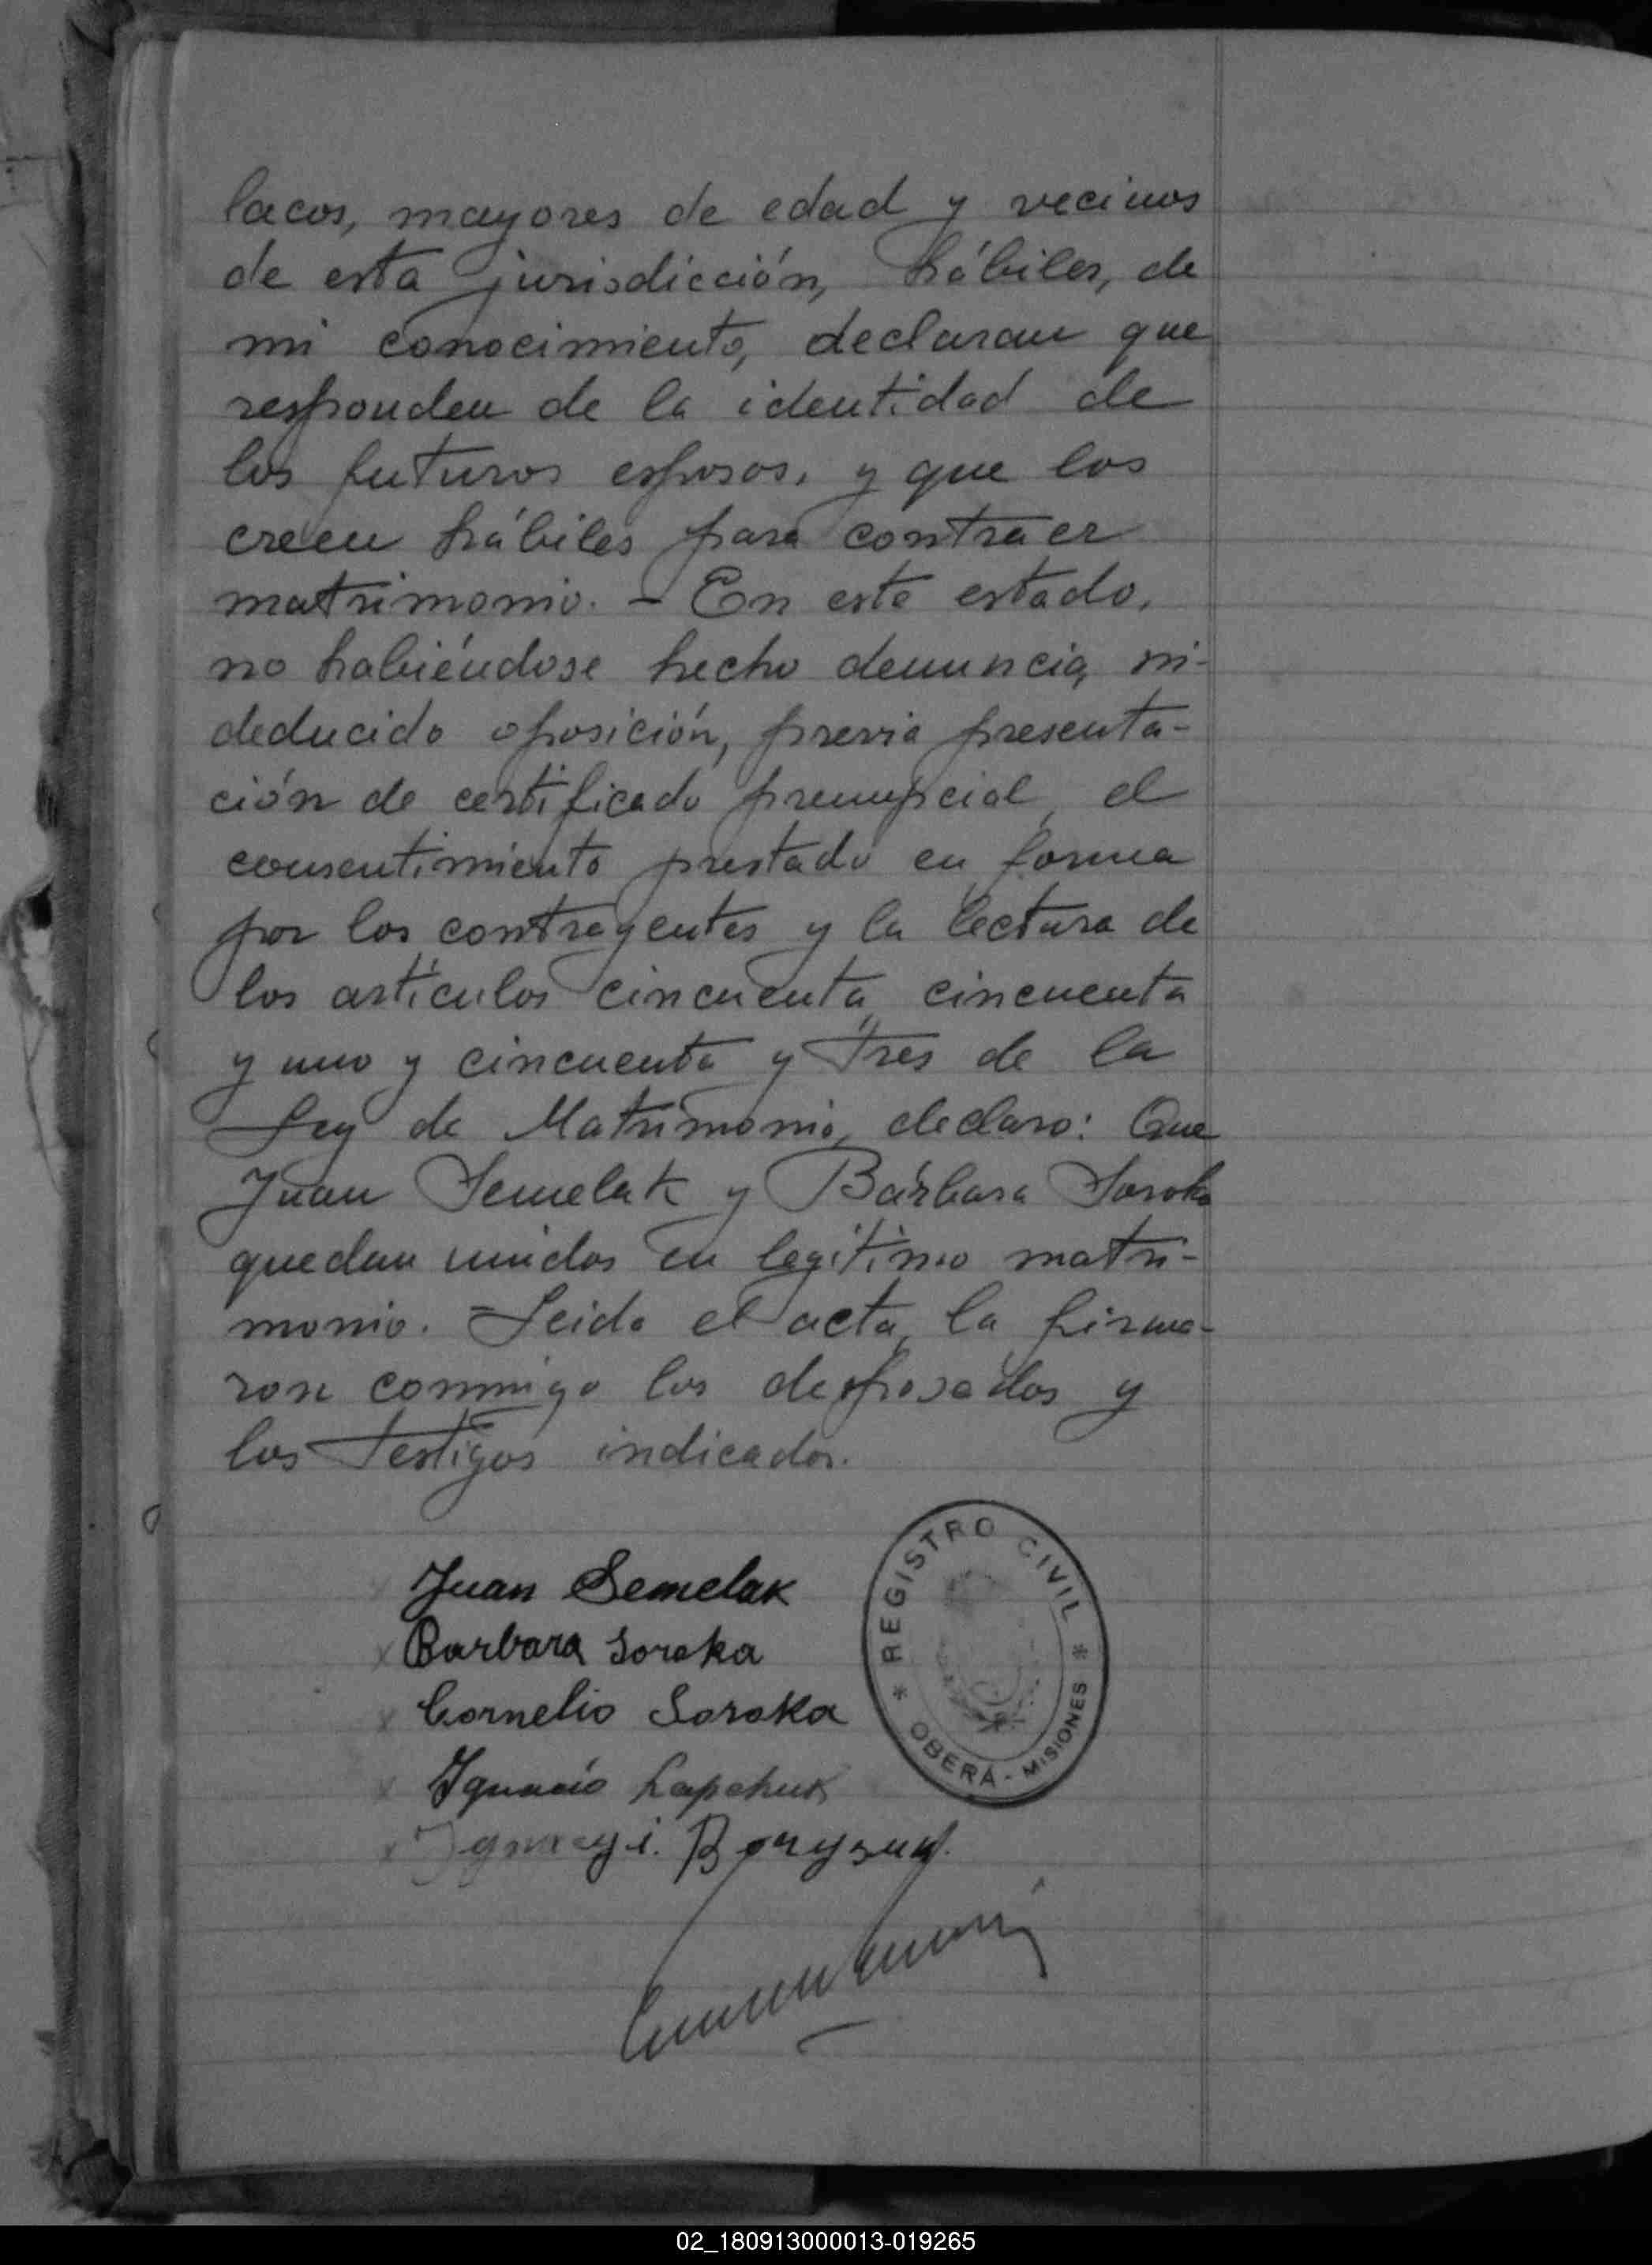 lacos, mayores de edad y vecinos
de esta jurisdicción, hábiles, de
mi conocimiento, declaran que
responden de la identidad de
los futuros esposos, y que los
creen hábiles para contraer
matrimonio. - En este estado,
no habiéndose hecho denuncia, ni
deducido oposición, previa presenta-
ción de certificado prenupcial, el
consentimiento prestado en forma
por los contrayentes y la lectura de
los artículos cincuenta, cincuenta
y uno y cincuenta y tres de la
Ley de Matrimonio, declaro: Que
Juan Semelak y Bárbara Soroka
quedan unidos en legítimo matri-
monio. = Leida el acta, la firma-
ron conmigo los desposados y
los testigos indicados.
Juan Semelak
Barbara Soroka
Cornelio Soroka
Ignacio Lapchuk
REGISTRO CIVIL
OBERÁ - MISIONES
02_180913000013-019265